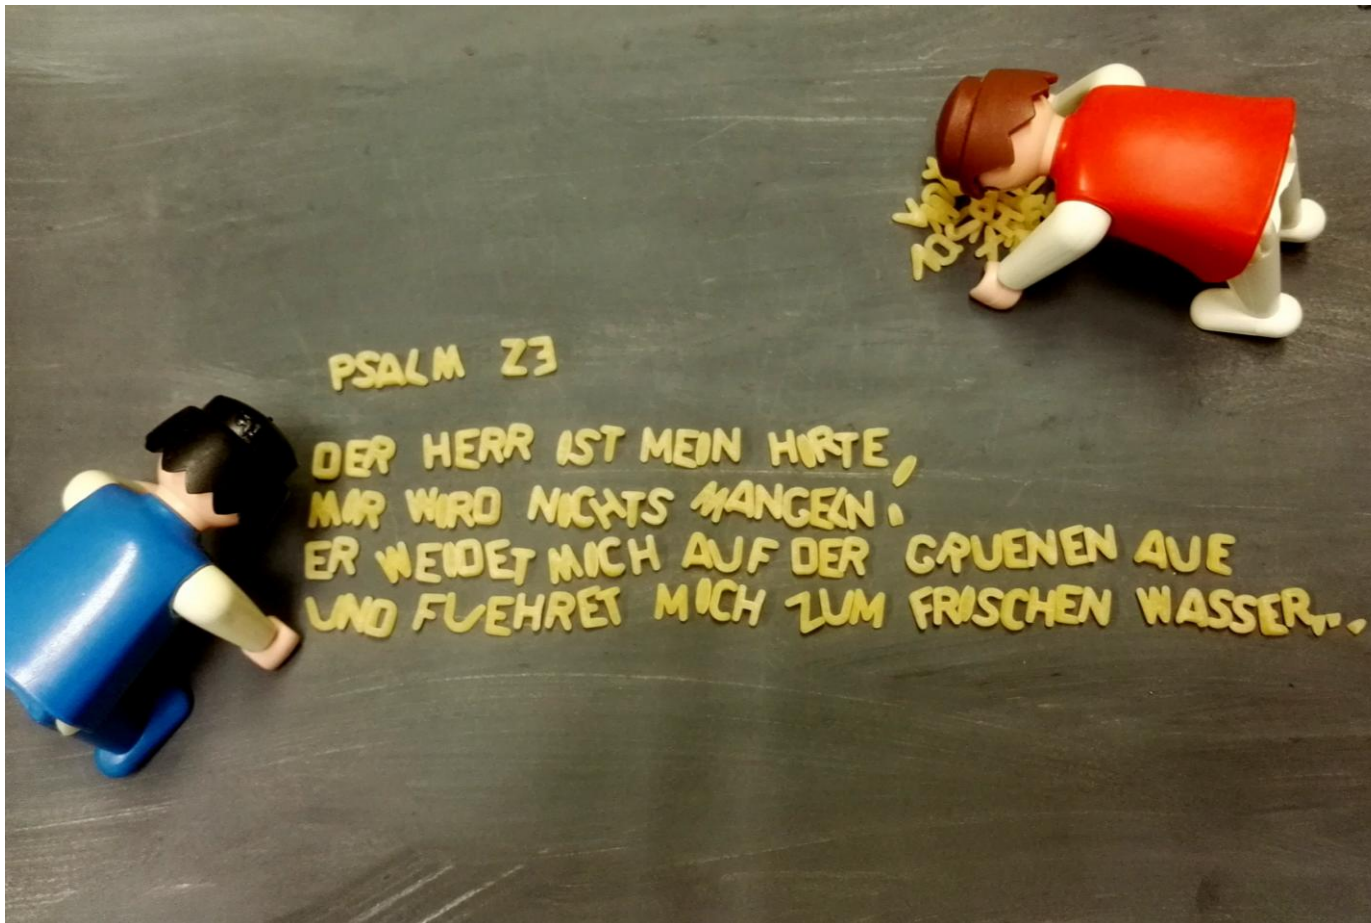 PSALM 23
DER HERR IST MEIN HIRTE,
MIR WIRD NICHTS MANGELN.
ER WEIDET MICH AUF DER GRUENEN AUE
UND FUEHRET MICH ZUM FRISCHEN WASSER...